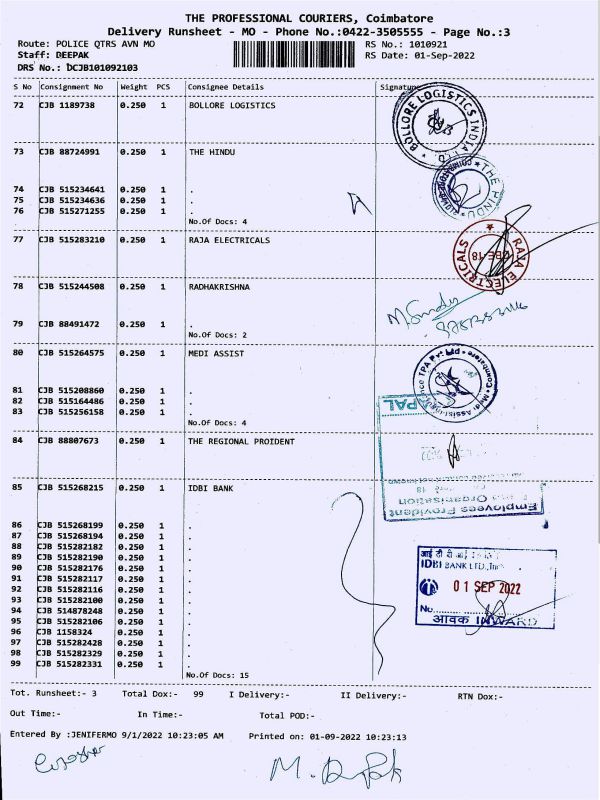 THE PROFESSIONAL COURIERS, Coimbatore
Delivery Runsheet - MO - Phone No.:0422-3505555 - Page No.:3
Route: POLICE QTRS AVN MO RS No.: 1010921
Staff: DEEPAK RS Date: 01-Sep-2022
DRS No.: DCJB101092103
S No Consignment No Weight PCS Consignee Details Signature
72 CJB 1189738 0.250 1 BOLLORE LOGISTICS
BOLLORE LOGISTICS INDIA LTD.
73 CJB 88724991 0.250 1 THE HINDU
THE HINDU
74 CJB 515234641 0.250 1 .
75 CJB 515234636 0.250 1 .
76 CJB 515271255 0.250 1 .
No.Of Docs: 4
77 CJB 515283210 0.250 1 RAJA ELECTRICALS
RAJA ELECTRICALS
CBE-18
78 CJB 515244508 0.250 1 RADHAKRISHNA
79 CJB 88491472 0.250 1 .
No.Of Docs: 2
80 CJB 515264575 0.250 1 MEDI ASSIST
81 CJB 515208860 0.250 1 .
82 CJB 515164486 0.250 1 .
83 CJB 515256158 0.250 1 .
No.Of Docs: 4
84 CJB 88807673 0.250 1 THE REGIONAL PROIDENT
Employees Provident
Organisation
85 CJB 515268215 0.250 1 IDBI BANK
86 CJB 515268199 0.250 1 .
87 CJB 515268194 0.250 1 .
88 CJB 515282182 0.250 1 .
89 CJB 515282190 0.250 1 .
90 CJB 515282176 0.250 1 .
91 CJB 515282117 0.250 1 .
92 CJB 515282116 0.250 1 .
93 CJB 515282100 0.250 1 .
94 CJB 514878248 0.250 1 .
95 CJB 515282106 0.250 1 .
96 CJB 1158324 0.250 1 .
97 CJB 515282428 0.250 1 .
98 CJB 515282329 0.250 1 .
99 CJB 515282331 0.250 1 .
No.Of Docs: 15
IDBI BANK LTD.,
01 SEP 2022
No.
आवक INWARD
Tot. Runsheet:- 3 Total Dox:- 99 I Delivery:- II Delivery:- RTN Dox:-
Out Time:- In Time:- Total POD:-
Entered By :JENIFERMO 9/1/2022 10:23:05 AM Printed on: 01-09-2022 10:23:13